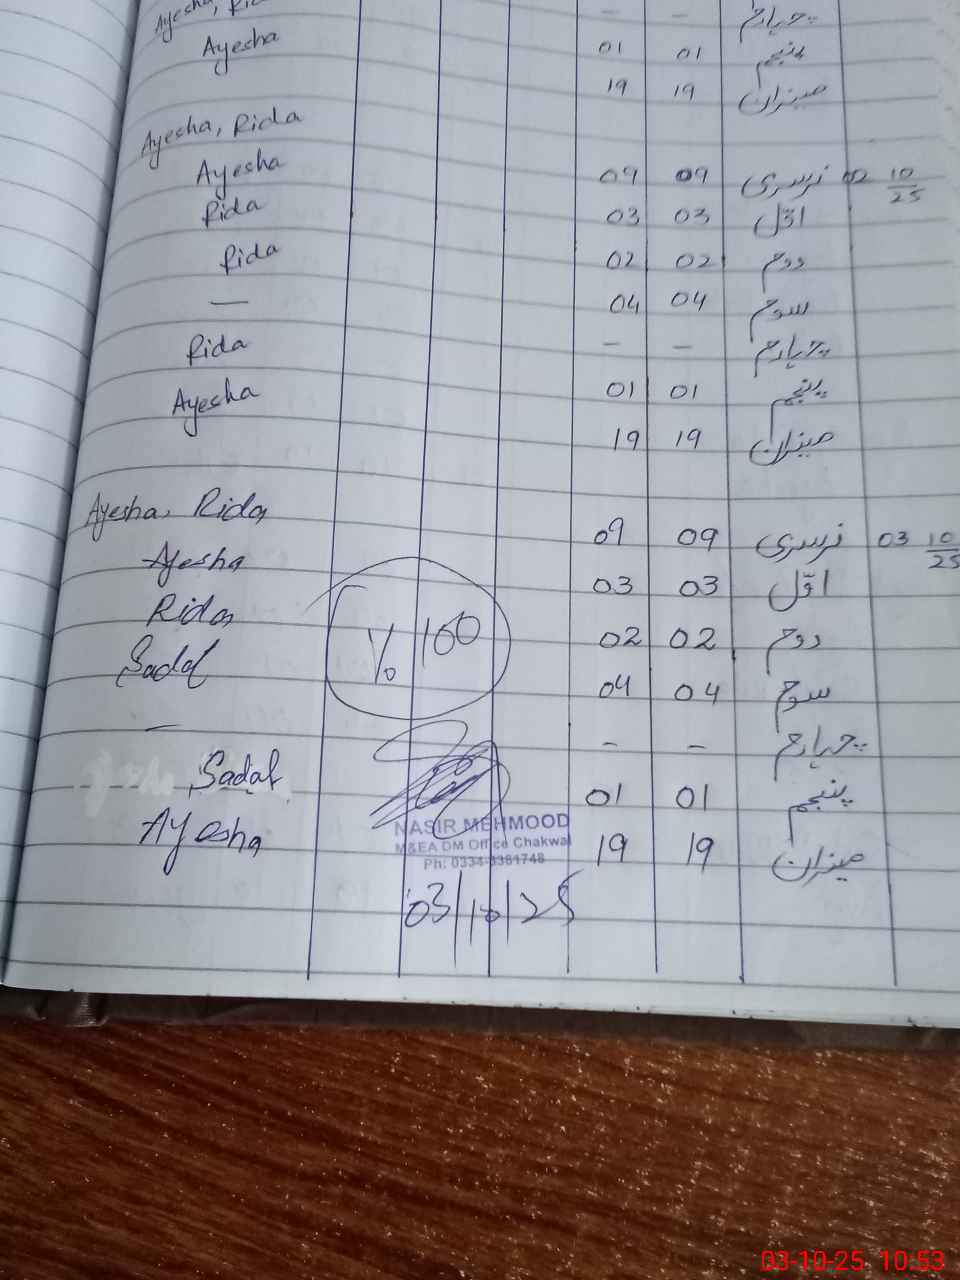 Ayesha, Rida - - چہارم
Ayesha 01 01 پنجم
19 19 میزان
Ayesha, Rida
Ayesha 09 09 نرسری 02 10/25
Rida 03 03 اوّل
Rida 02 02 دوم
— 04 04 سوم
Rida - - چہارم
Ayesha 01 01 پنجم
19 19 میزان
Ayesha, Rida
Ayesha 09 09 نرسری 03 10/25
Rida 03 03 اوّل
Sadaf 02 02 دوم
04 04 سوم
% 100
— - - چہارم
Sadaf 01 01 پنجم
Ayesha 19 19 میزان
NASIR MEHMOOD
M&EA DM Office Chakwal
Ph: 0334-8381748
03/10/25
03-10-25 10:53